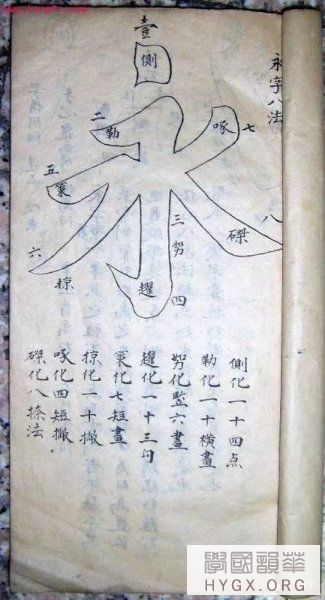 永字八法
壹
側
二 勒
啄 七
五 策
三 努
八
磔
六
掠
趯 四
側化一十四点
勒化一十橫畫
努化竪六畫
趯化一十三勾
策化七短畫
掠化一十撇
啄化四短撇
磔化八捺法
學國韻華
HYGX.ORG